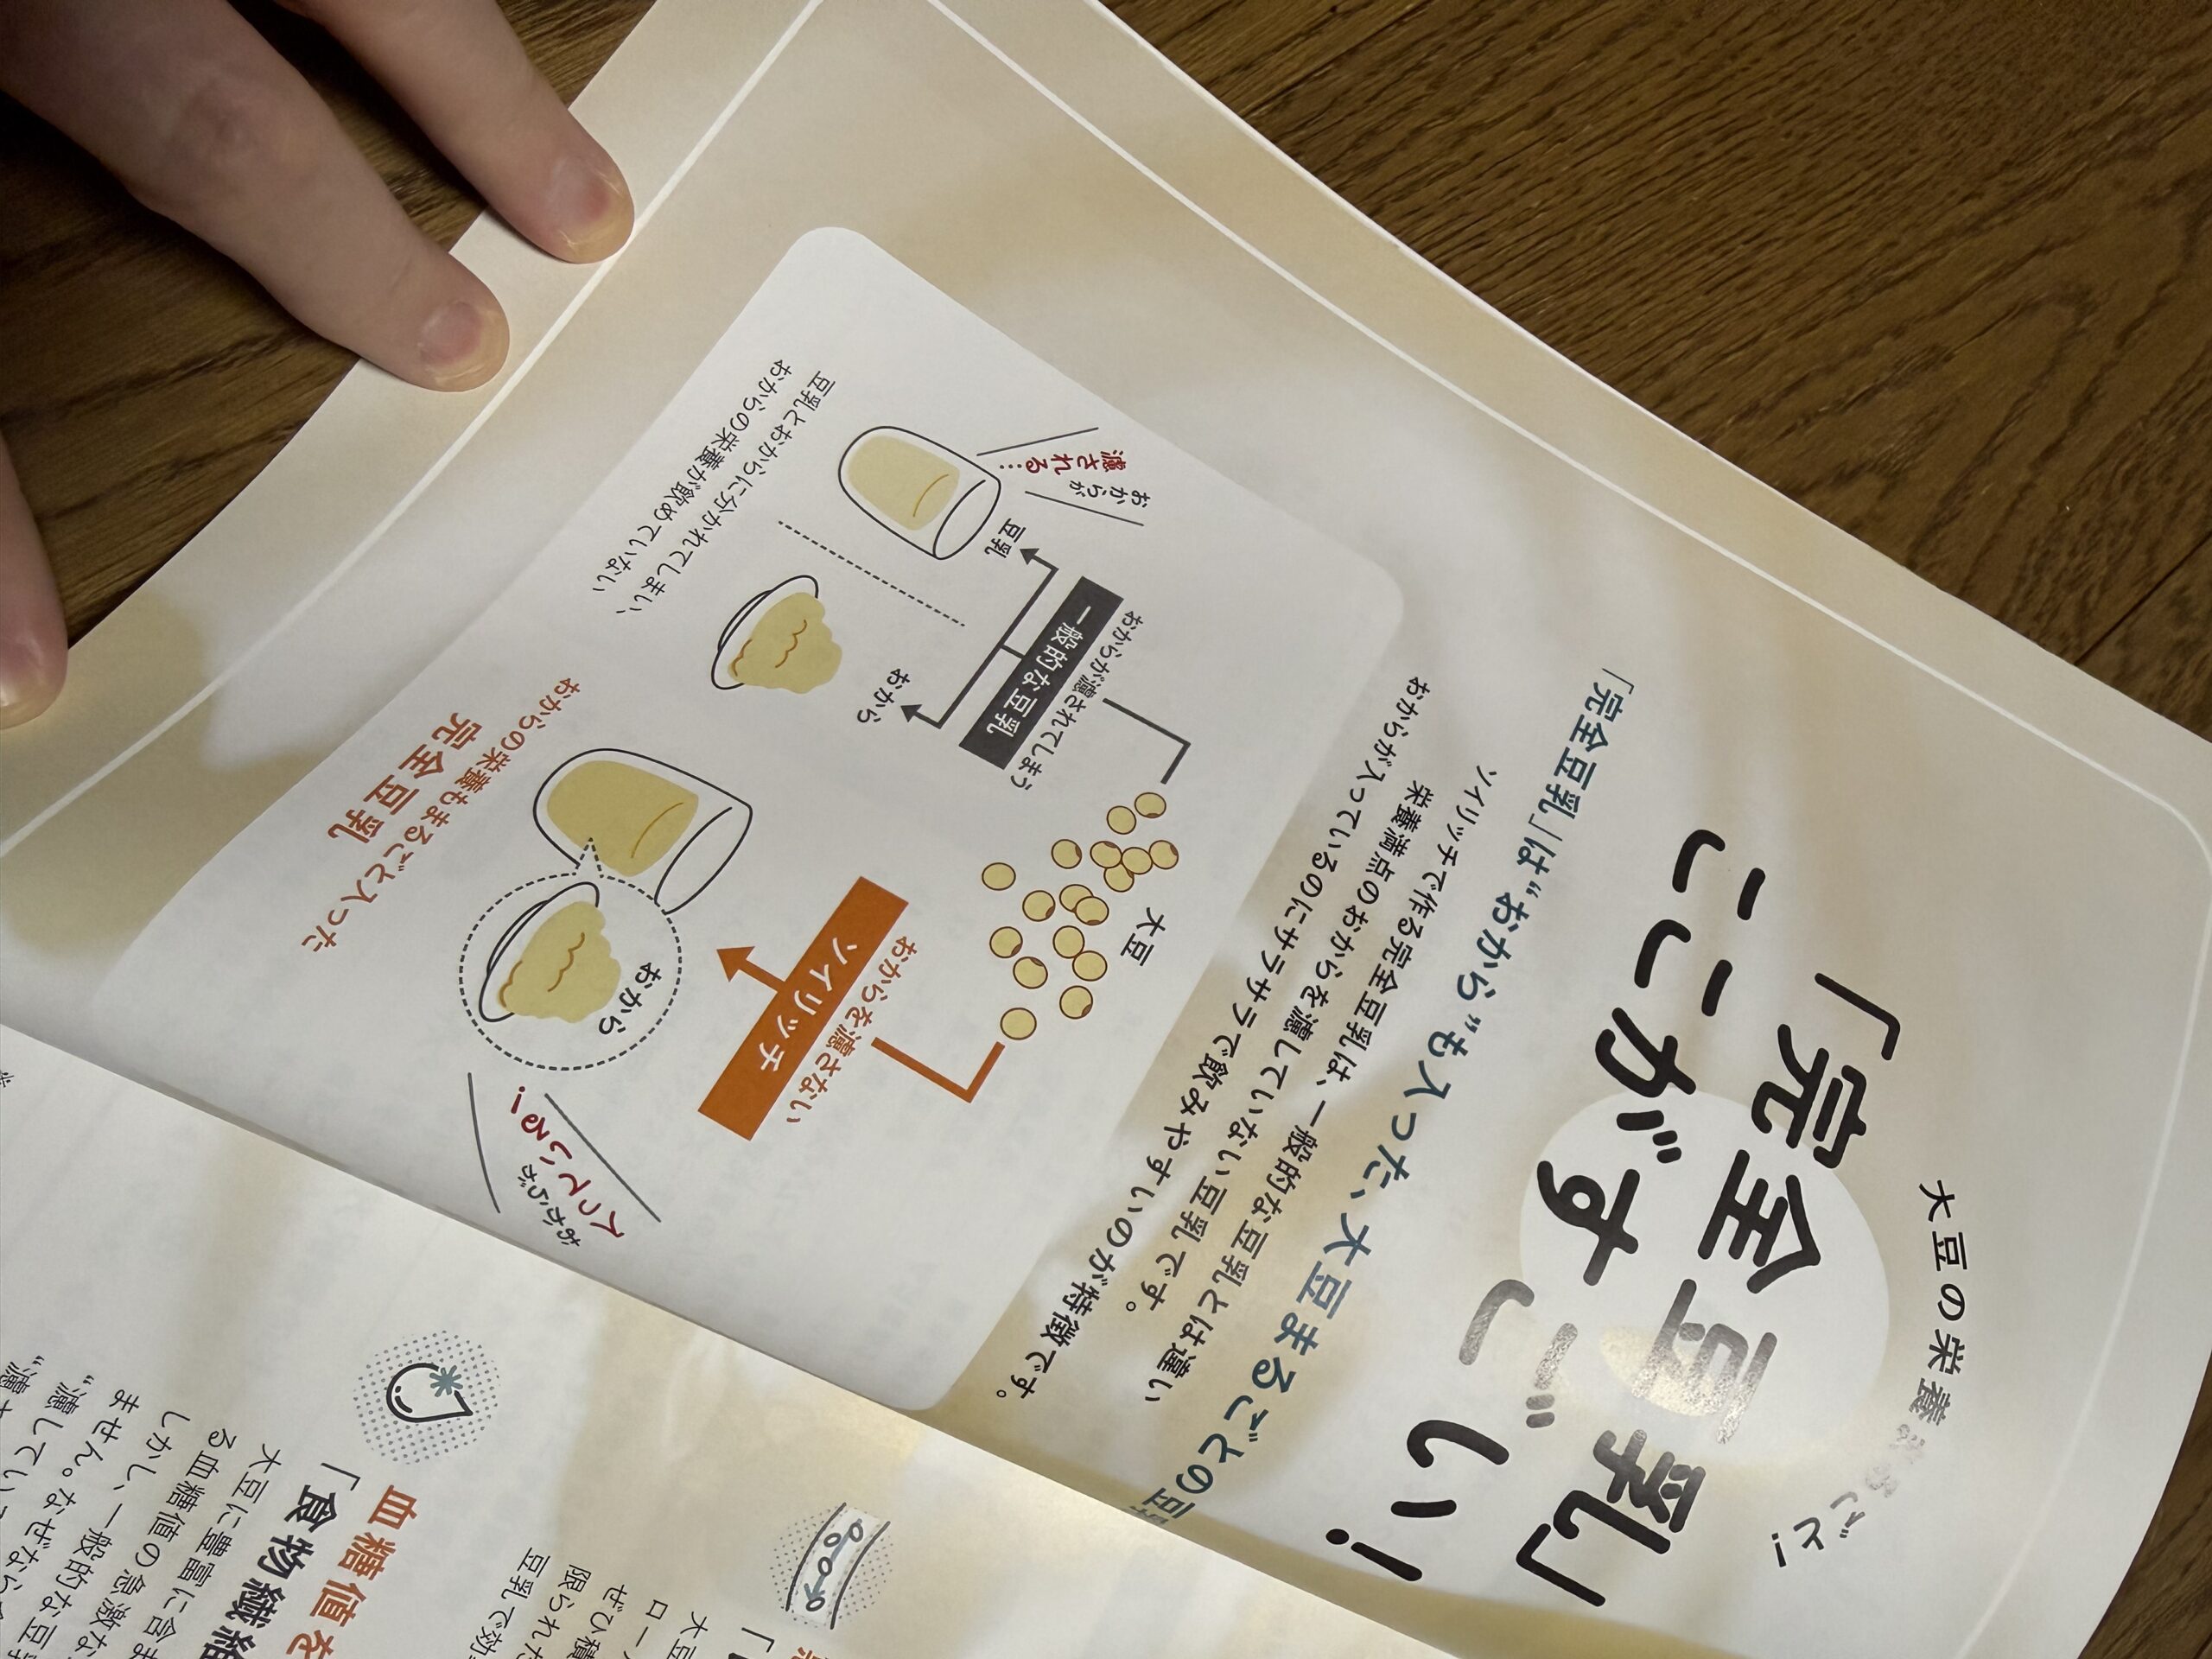 大豆の栄養まるごと!
「完全豆乳」
ここがすごい!
「完全豆乳」は“おから”も入った、大豆まるごとの豆
ソイリッチで作る完全豆乳は、一般的な豆乳とは違い
栄養満点のおからを濾していない豆乳です。
おからが入っているのにサラサラで飲みやすいのが特徴です。
大豆
おからが濾されてしまう
一般的な豆乳
豆乳
おから
おからが
濾される…
豆乳とおからに分かれてしまい、
おからの栄養が飲めていない
おからを濾さない
ソイリッチ
おから
おからが
入っている!
おからの栄養もまるごと入った
完全豆乳
血糖値を
「食物繊維
大豆に豊富に含ま
る血糖値の急激な
しかし、一般的な豆
ません。なぜなら
“濾してい
“濾
「
大豆
ロー
ぜひ積
限られた
豆乳で効